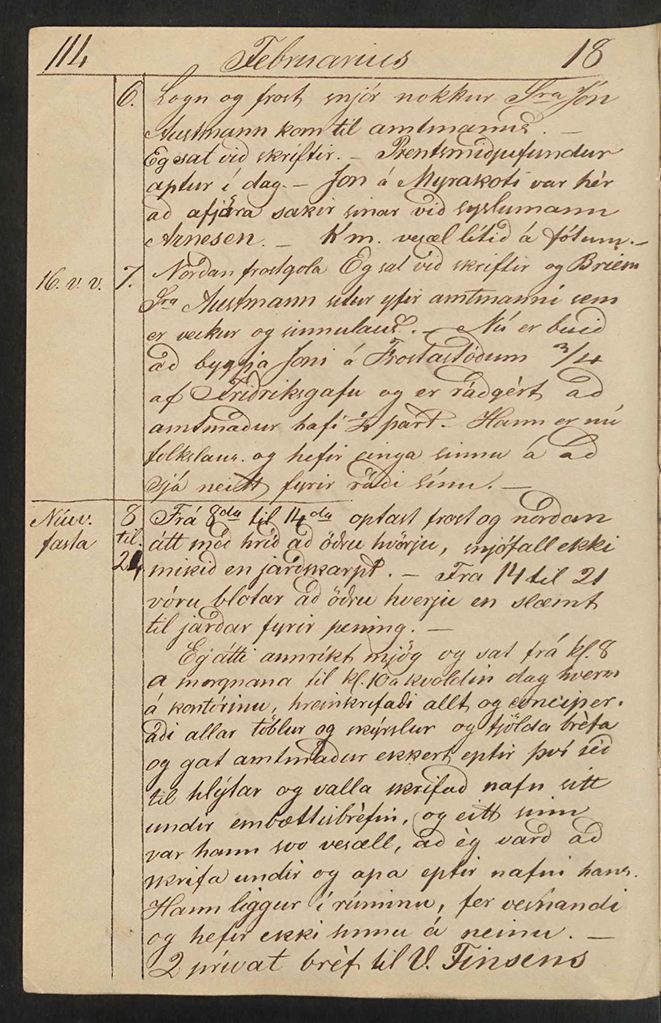 111. Februarius 18
6. Logn og frost, snjór nokkur Sra Jón
Austmann kom til amtmanns. —
Eg sat við skriftir. — Prentsmiðjufundur
aptur í dag. — Jón á Myrakoti var hér
að afjara sakir sínar við syslumann
Arnesen. — Km. vesæl lítið á fótum. —
16. v. v. 7. Norðan frostgola Eg sat við skriftir og Briem
Sra Austmann situr yfir amtmanni sem
er veikur og sinnulaus. — Nú er búið
að byggja Joni á Frostastöðum 3/4
af Friðriksgafu og er ráðgért að
amtmaður hafi 1/4 part. — Hann er nú
folkslaus. og hefir einga sinnu á að
sjá neitt fyrir ráði sínu. —
Níuv. fasta 8 til 21 Frá 8da til 14da optast frost og norðan
átt með hríð að öðru hvörju, snjófall ekki
mikið en jarðskarpt. — Fra 14 til 21
vóru blotar að öðru hverju en slæmt
til jarðar fyrir pening. —
Eg átti annríkt mjög og sat frá kl. 8
a morgnana til kl. 10 a kvoldin dag hvern
á kontórinu, hreinskrifaði allt og conciper-
aði allar töblur og skýrslur og fjölda bréfa
og gat amtmaður ekkert eptir því séð
til hlýtar og valla skrifað nafn sitt
undir embættisbréfin, og eitt sinn
var hann svo vesæll, að èg varð að
skrifa undir og apa eptir nafni hans.
Hann liggur í rúminu, fer versnandi
og hefir ekki sinnu á neinu. —
2 prívat bréf til V. Finsens